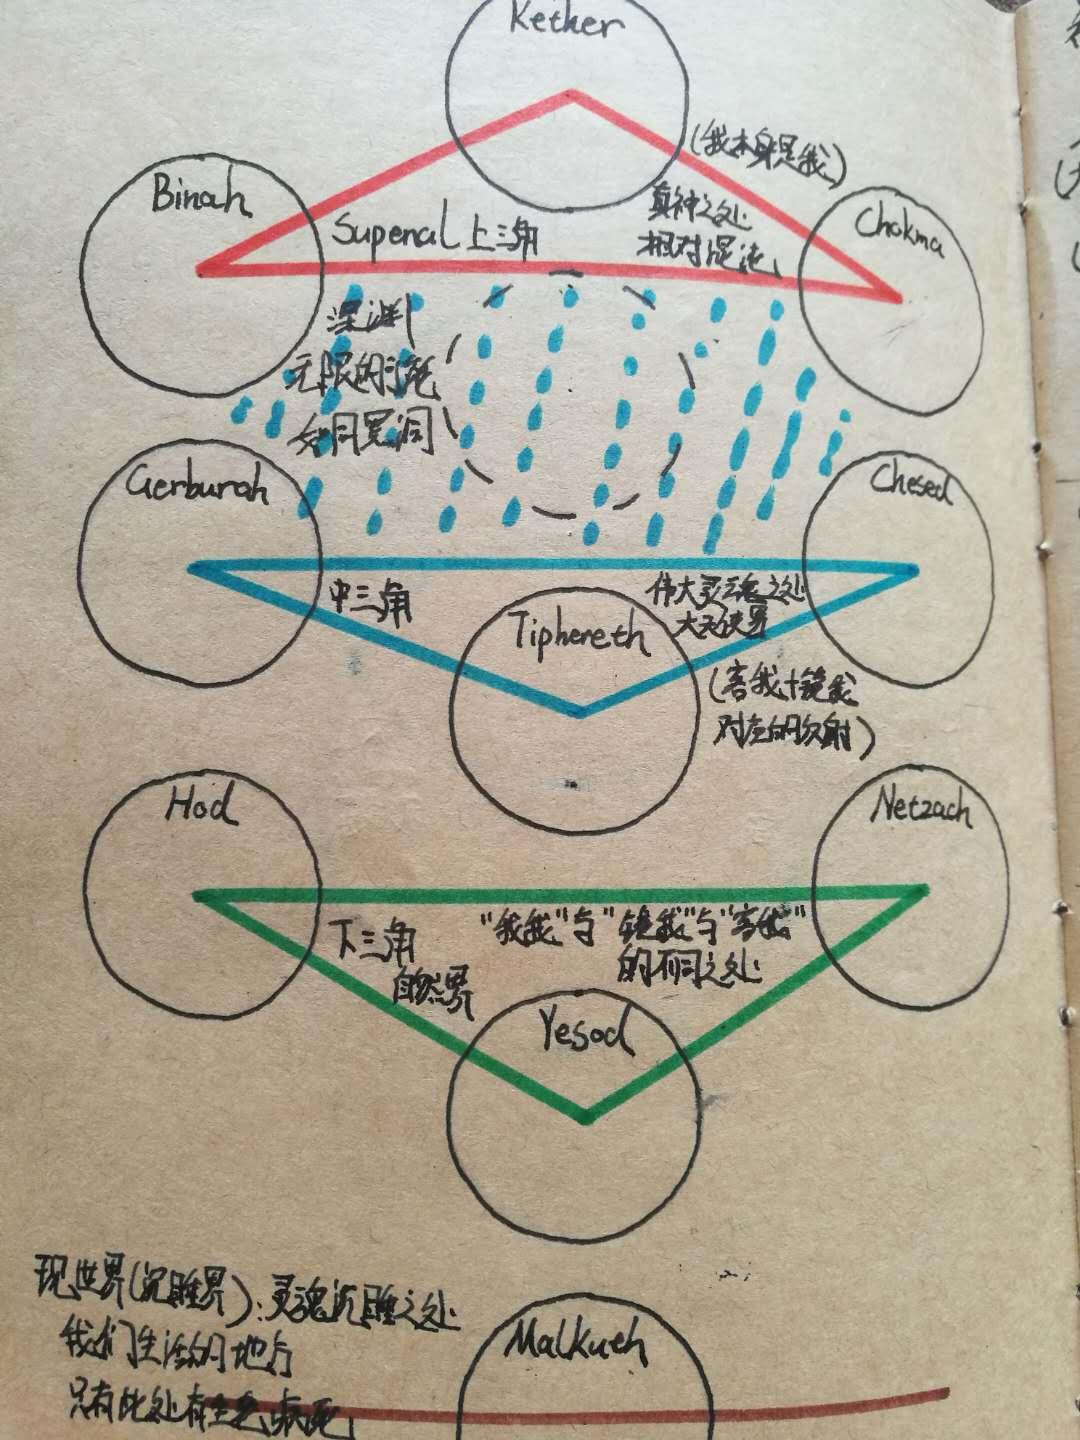 Kether
(我本身是我)
Binah
真神之处
Chokma
Supenal 上三角
相对混沌
深渊
无限的消耗
如同黑洞
Gerburah
Chesed
中三角
伟大灵魂之处
大天使界
Tiphereth
(客我+镜我
对应的反射)
Hod
Netzach
下三角
"我我"与"镜我"与"客我"
的不同之处
自然界
Yesod
现世界(沉睡界):灵魂沉睡之处
Malkuth
我们生活的地方
只有此处有生老病死